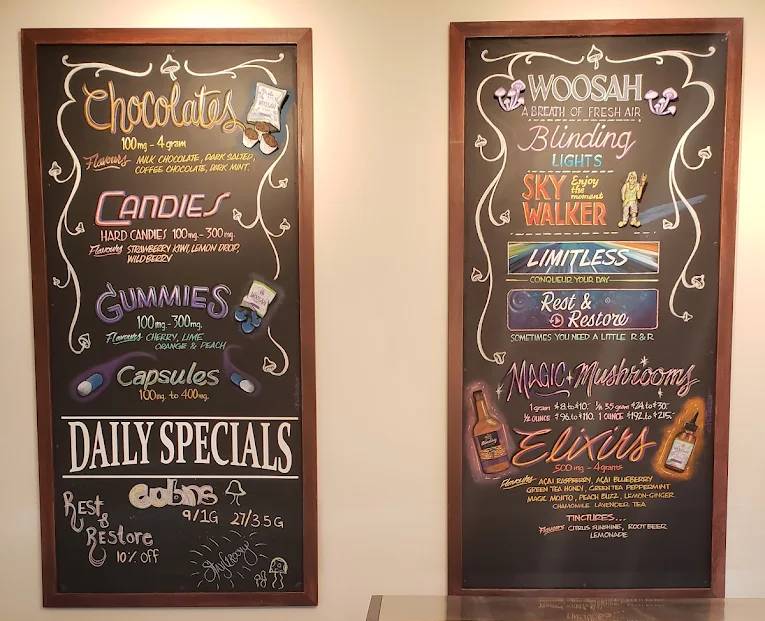 Chocolates
100mg - 4 gram
Flavours - MILK CHOCOLATE, DARK SALTED,
COFFEE CHOCOLATE, DARK MINT.
CANDIES
HARD CANDIES 100mg - 300mg.
Flavours STRAWBERRY KIWI, LEMON DROP,
WILDBERRY
GUMMIES
WOOSAH
100mg - 300mg.
Flavours CHERRY, LIME,
ORANGE & PEACH
Capsules
100mg. to 400mg.
DAILY SPECIALS
9/1G 27/3.5G
REST
&
RESTORE
10% OFF
WOOSAH
A BREATH OF FRESH AIR
Blinding
LIGHTS
SKY Enjoy the moment
WALKER
LIMITLESS
CONQUER YOUR DAY
Rest &
Restore
SOMETIMES YOU NEED A LITTLE R & R
MAGIC Mushrooms
1 gram $8. to $10.- 1/8 3.5 grams $24. to $30.-
1/2 OUNCE $96. to $110. 1 OUNCE $192. to $215.-
Elixirs
500 mg - 4 grams
Flavours AÇAI RASPBERRY, AÇAI BLUEBERRY
GREEN TEA HONEY, GREEN TEA PEPPERMINT
MAGIC MOJITO, PEACH BUZZ, LEMON-GINGER
CHAMOMILE LAVENDER TEA
TINCTURES...
Flavours CITRUS SUNSHINE, ROOT BEER
LEMONADE